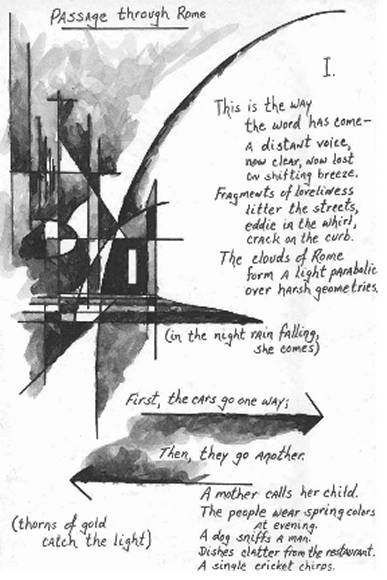 Passage through Rome
I.
This is the way
the word has come—
a distant voice,
now clear, now lost
on shifting breeze.
Fragments of loveliness
litter the streets,
eddie in the whirl,
crack on the curb.
The clouds of Rome
form a light parabolic
over harsh geometries.
(in the night rain falling,
she comes)
First, the cars go one way;
Then, they go another.
A mother calls her child.
The people wear spring colors
at evening.
A dog sniffs a man.
Dishes clatter from the restaurant.
A single cricket chirps.
(thorns of gold
catch the light)